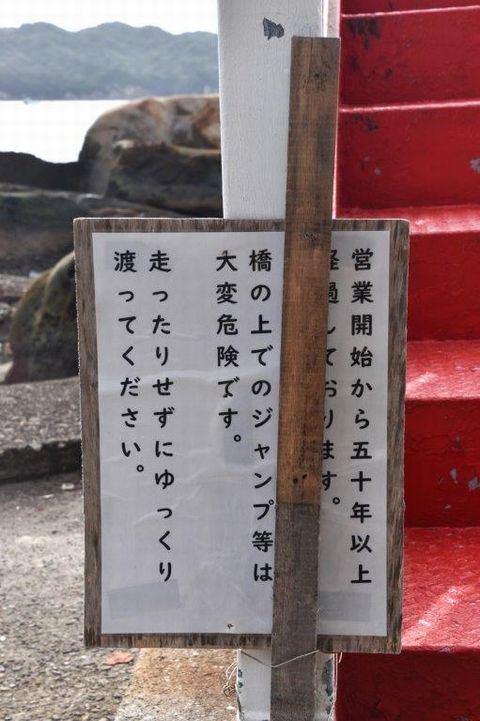 営業開始から五十年以上
経過しております。
橋の上でのジャンプ等は
大変危険です。
走ったりせずにゆっくり
渡ってください。